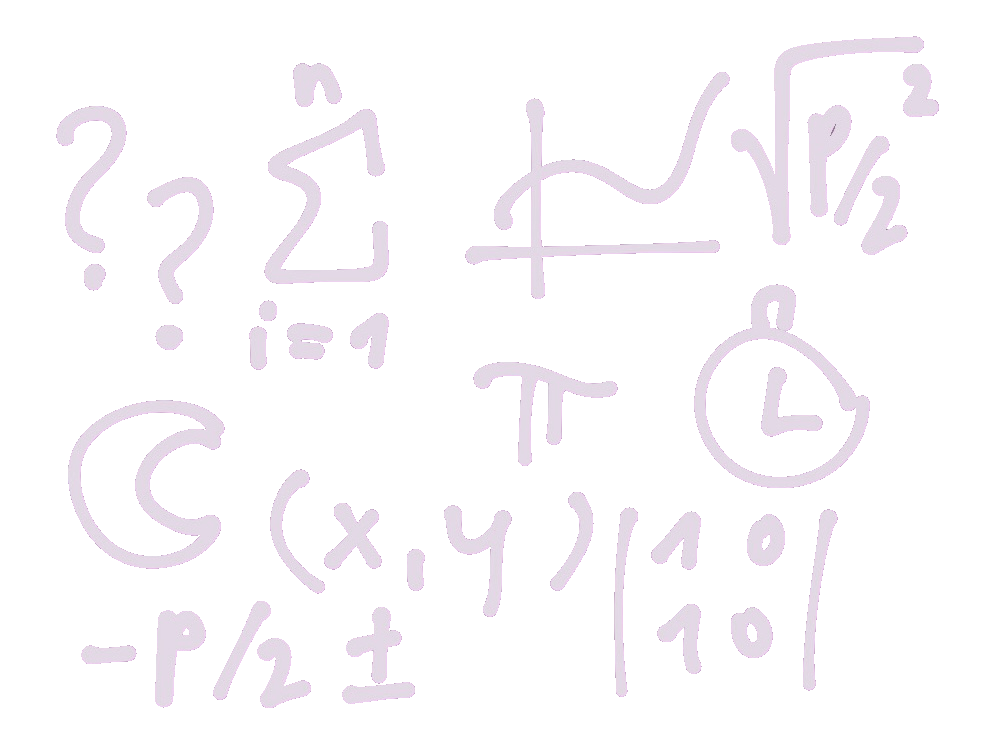 ? ?
n
Σ
i=1
√p/2 2
π
(x,y)
|1 0|
|1 0|
-p/2 ±